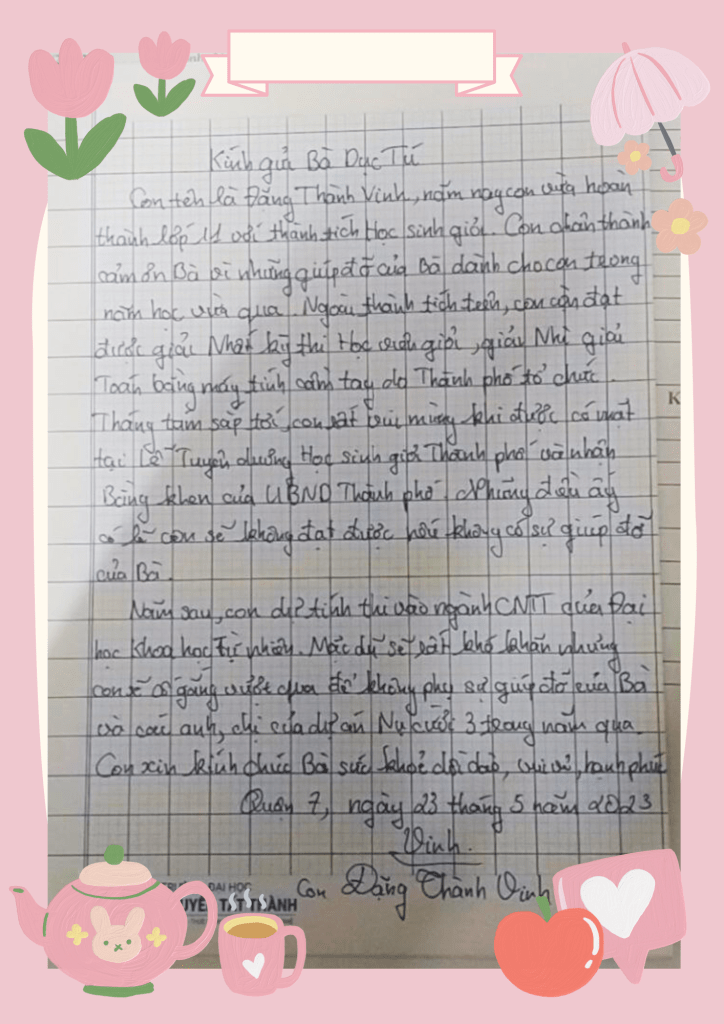 Kính gửi Bà Dục Tú
Con tên là Đặng Thành Vinh, năm nay con vừa hoàn
thành lớp 11 với thành tích Học sinh giỏi. Con chân thành
cảm ơn Bà vì những giúp đỡ của Bà dành cho con trong
năm học vừa qua. Ngoài thành tích trên, con còn đạt
được giải Nhất kỳ thi Học sinh giỏi, giải Nhì giải
Toán bằng máy tính cầm tay do Thành phố tổ chức.
Tháng tám sắp tới, con rất vui mừng khi được có mặt
tại Lễ Tuyên dương Học sinh giỏi Thành phố và nhận
Bằng khen của UBND Thành phố. Những điều ấy
có lẽ con sẽ không đạt được nếu không có sự giúp đỡ
của Bà.
Năm sau, con dự tính thi vào ngành CNTT của Đại
học Khoa học Tự nhiên. Mặc dù sẽ rất khó khăn nhưng
con sẽ cố gắng vượt qua để không phụ sự giúp đỡ của Bà
và các anh, chị của dự án Nụ cười 3 trong năm qua.
Con xin kính chúc Bà sức khoẻ dồi dào, vui vẻ, hạnh phúc
Quận 7, ngày 23 tháng 5 năm 2023
Vinh.
Con Đặng Thành Vinh
ĐẠI HỌC
TẤT THÀNH
K